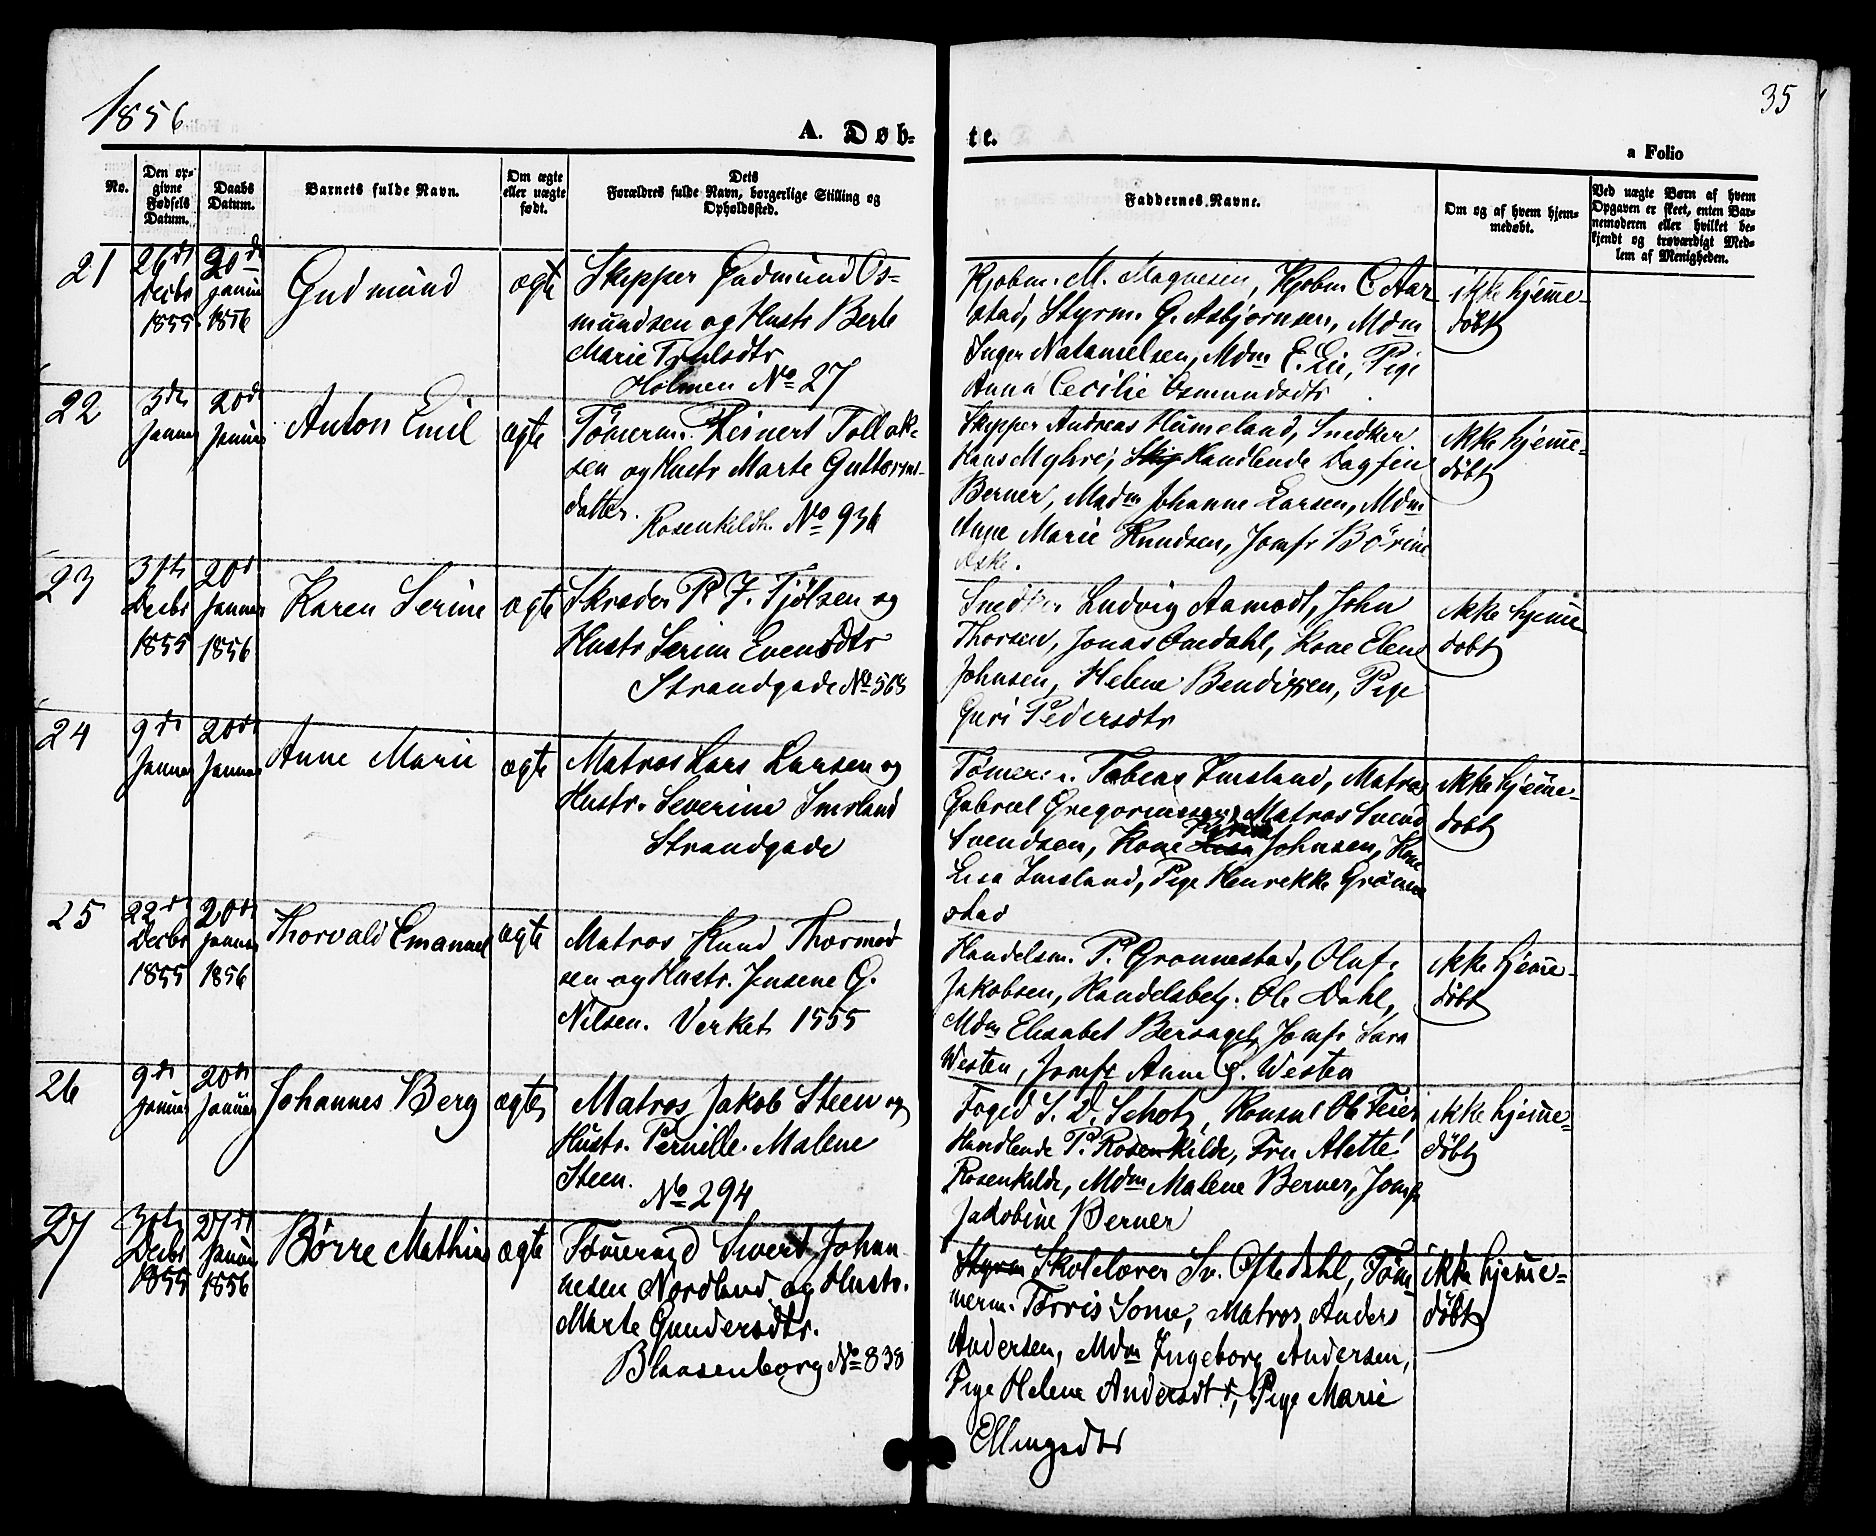 1856
35
A. Døb-
te.
a Folio
No.
Den op-
givne
Fødsels
Datum.
Daabs
Datum.
Barnets fulde Navn.
Om ægte
eller uægte
født.
Dets
Forældres fulde Navn, borgerlige Stilling og
Opholdssted.
Faddernes Navne.
Om og af hvem hjem-
medøbt.
Ved uægte Børn af hvem
Opgaven er skeet, enten Bar-
nemoderen eller hvilket be-
kjendt og troværdigt Med-
lem af Menigheden.
21
26de
Decbr
1855
20de
Januar
1856
Gudmund
ægte
Skipper Gudmund Os-
mundsen og Hustr Berte
Marie Trulsdtr
Holmen No 27
Kjøbm. M. Magnesen, Kjøbm C Aar-
stad, Styrm. G. Asbjørnsen, Mdm
Inger Natanielsen, Mdm E. Lie, Pige
Anna Cecilie Osmundsdtr
ikke hjemme-
døbt
22
3de
Januar
20de
Januar
Anton Emil
ægte
Tømerm. Reinert Tollak-
sen og Hustr Marte Guttorms-
datter.
Rosenkildh. No 936
Skipper Andreas Hummeland, Snedker
Hans Myhre, Handlende Dagfin
Berner, Madm Johanne Larsen, Mdm
Anne Marie Knudsen, Jomfr Børine
Aske.
ikke hjemme-
døbt
23
31te
Decbr
1855
20de
Januar
1856
Karen Serine
ægte
Skræder P. J. Tjølsen og
Hustr Serine Evensdtr
Strandgade No 568
Snedker Ludvig Aamodt, John
Thorsen, Jonas Omdahl, Kone Elene
Johnsen, Helene Bendixen, Pige
Guri Pedersdtr
ikke hjemme
døbt
24
9de
Januar
20de
Januar
Anne Marie
ægte
Matros Lars Larsen og
Hustr. Severine Imsland
Strandgade
Tømerm. Tobias Imsland, Matros
Gabriel Gregoriussen, Matros Svend
Svendsen, Kone Johnsen, Kone
Lisa Imsland, Pige Henrekke Grønne
stad
ikke hjemme-
døbt
25
22de
Decbr
1855
20de
Januar
1856
Thorvald Emanuel
ægte
Matros Knud Thormod
sen og Hustr. Jensene G.
Nilsen. Verket 1555
Handelsm. P. Grønnestad, Oluf
Jakobsen, Handelsbetj. Ole Dahl,
Mdm Elisabet Bersagel, Jomfr Sara
Westen, Jomfr Anne G. Westen
ikke hjemme-
døbt
26
9de
Januar
20de
Januar
Johannes Berg
ægte
Matros Jakob Steen og
Hustr. Pernille Malene
Steen.
No 294
Foged S. D. Schiøtz, Konsul Ole Feier
Handlende P. Rosenkilde, Fru Alette
Rosenkilde, Mdm Malene Berner, Jomfr
Jakobine Berner
ikke hjemme-
døbt
27
30te
Decbr
1855
27de
Januar
1856
Børre Mathias
ægte
Tømermd Sivert Johan
nesen Nordland og Hustr.
Marte Gundersdtr.
Blaasenborg No 838
Styrm Skolelærer Sv. Oftedahl, Tøm
merm. Torris Some, Matros Anders
Andersen, Mdm Ingeborg Andersen,
Pige Helene Andersdtr, Pige Marie
Ellingsdtr
ikke hjemme-
døbt